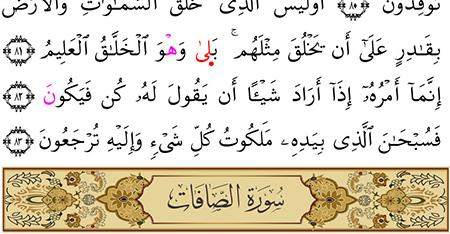 تُوقِدُونَ ﴿٨٠﴾ أَوَلَيْسَ ٱلَّذِى خَلَقَ ٱلسَّمَٰوَٰتِ وَٱلْأَرْضَ
بِقَٰدِرٍ عَلَىٰٓ أَن يَخْلُقَ مِثْلَهُم ۚ بَلَىٰ وَهُوَ ٱلْخَلَّٰقُ ٱلْعَلِيمُ ﴿٨١﴾
إِنَّمَآ أَمْرُهُۥٓ إِذَآ أَرَادَ شَيْـًٔا أَن يَقُولَ لَهُۥ كُن فَيَكُونَ ﴿٨٢﴾
فَسُبْحَٰنَ ٱلَّذِى بِيَدِهِۦ مَلَكُوتُ كُلِّ شَىْءٍ وَإِلَيْهِ تُرْجَعُونَ ﴿٨٣﴾
سُورَةُ الصَّافَّاتِ